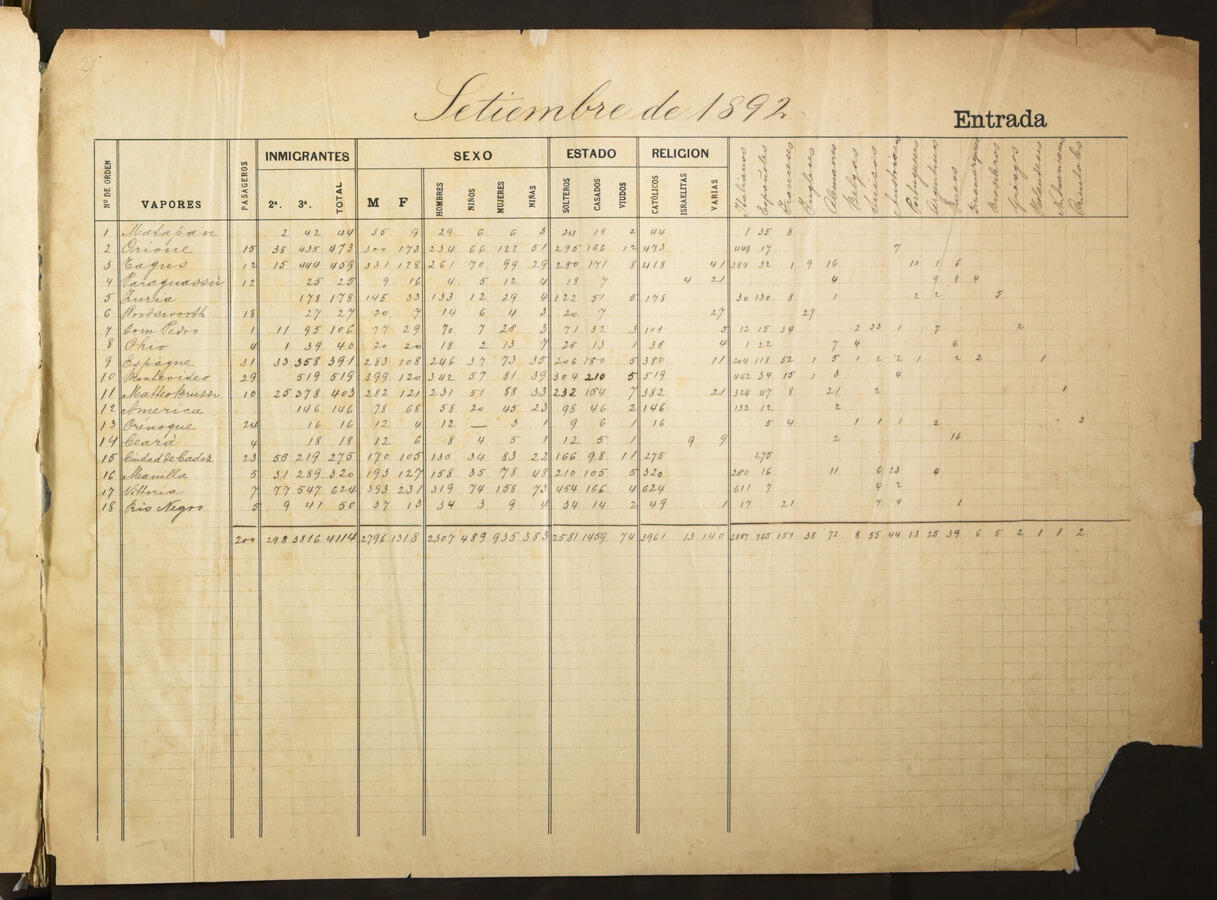 Setiembre de 1892
Entrada
Nº DE ORDEN VAPORES PASAGEROS INMIGRANTES SEXO ESTADO RELIGION
2ª. 3ª. TOTAL M F HOMBRES NIÑOS MUJERES NIÑAS SOLTEROS CASADOS VIUDOS CATÓLICOS ISRAELITAS VARIAS Italianos Españoles Franceses Ingleses Alemanes Belgas Suizos Portugueses Griegos
1 Matapan 2 42 44 35 9 29 6 6 3 24 18 2 44 1 35 8
2 Orione 15 38 435 473 300 173 234 66 122 51 295 166 12 473 449 17 7
3 Tagus 12 15 444 459 331 128 261 70 99 29 280 171 8 418 41 384 32 1 9 16 10 1 6
4 Paraguassú 12 25 25 9 16 4 5 12 4 18 7 4 21 4 9 8 4
5 Zuria 178 178 145 33 133 12 29 4 122 51 5 178 30 130 8 1 2 2 5
6 Wordsworth 18 27 27 20 7 14 6 4 3 20 7 27 27
7 Dom Pedro 1 11 95 106 77 29 70 7 26 3 71 32 3 101 5 12 15 34 2 33 1 7 2
8 Ohio 4 1 39 40 20 20 18 2 13 7 26 13 1 36 4 1 22 7 4 6
9 Espagne 31 33 358 391 283 108 246 37 73 35 206 180 5 380 11 204 118 52 1 5 1 2 2 1 2 2 1
10 Montevideo 29 519 519 399 120 342 57 81 39 304 210 5 519 462 34 15 1 3 4
11 Matteo Bruzzo 10 25 378 403 282 121 231 51 88 33 232 164 7 382 21 324 47 8 21 2 1
12 America 146 146 78 68 58 20 45 23 98 46 2 146 132 12 2
13 Orenoque 24 16 16 12 4 12 — 3 1 9 6 1 16 5 4 1 1 1 2 2
14 Ceará 4 18 18 12 6 8 4 5 1 12 5 1 9 9 2 16
15 Ciudad de Cadiz 23 56 219 275 170 105 136 34 83 22 166 98 11 275 275
16 Manilla 5 31 289 320 193 127 158 35 78 48 210 105 5 320 260 16 11 6 23 4
17 Vittoria 7 77 547 624 393 231 319 74 158 73 454 166 4 624 611 7 4 2
18 Rio Negro 5 9 41 50 37 13 34 3 9 4 34 14 2 49 1 17 21 7 4 1
200 298 3816 4114 2796 1318 2307 489 935 383 2581 1459 74 3961 13 140 2887 765 151 38 72 8 55 44 13 25 39 6 5 2 1 1 2